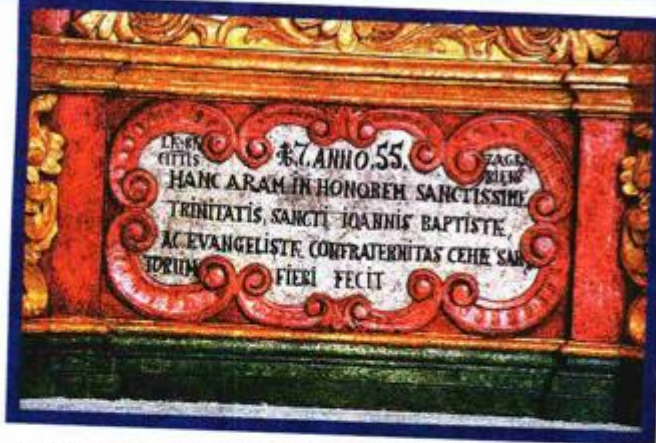 CITTIS
17.ANNO.55.
HANC ARAM IN HONOREM SANCTISSIMÆ
TRINITATIS, SANCTI IOANNIS BAPTISTÆ,
AC EVANGELISTÆ, CONFRATERNITAS CEHÆ SAR
TORUM FIERI FECIT